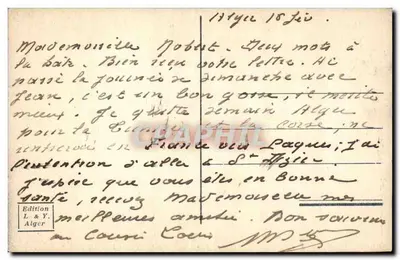 Alger 18 fév.
Mademoiselle Robert. Deux mots à
la hâte. Bien reçu votre lettre. Ai
passé la journée de dimanche avec
Jean, c'est un bon gosse, il mérite
mieux. Je quitte demain Alger
pour la et la Corse, ne
rentrerai en France vers Paques; J'ai
l'intention d'aller à St
J'espère que vous êtes en bonne
santé, recevez Mademoiselle mes
meilleures amitiés. Bon souvenir
au Cousin
Edition
L. & Y.
Alger